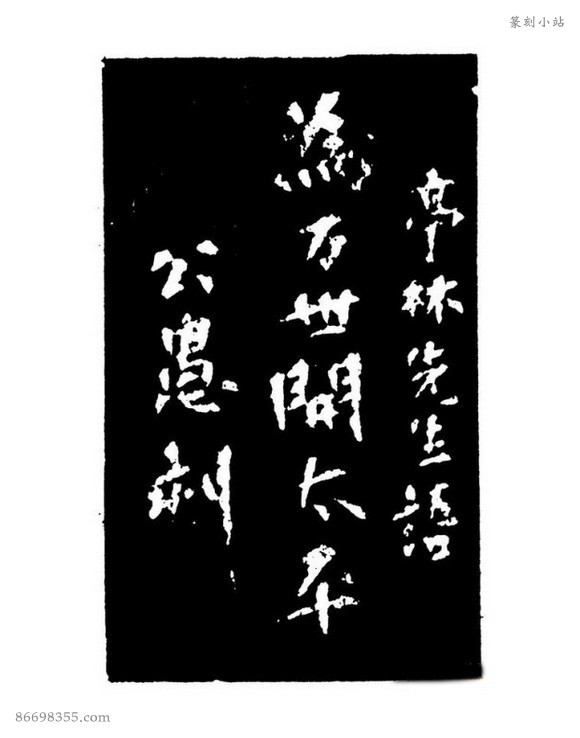 篆刻小站
亭林先生語
為万世開太平
公愚刻
86698355.com